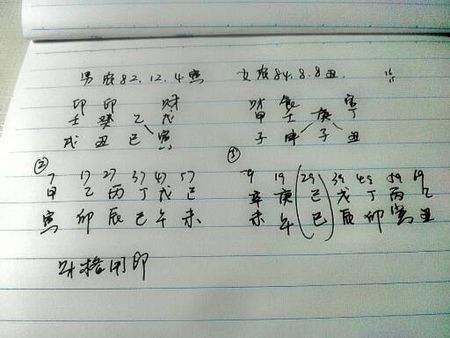 男农82.12.4寅 女农84.8.8丑
印 印 财 财 食 官
壬 癸 乙 戊 甲 壬 庚 丁
戌 丑 巳 寅 子 申 子 丑
② ①
7 17 27 37 47 57 9 19 29 39 49 59 69
甲 乙 丙 丁 戊 己 辛 庚 己 戊 丁 丙 乙
寅 卯 辰 巳 午 未 未 午 巳 辰 卯 寅 丑
财格用印